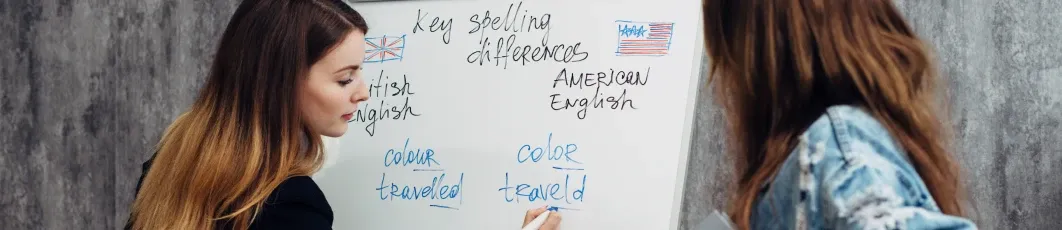 Key spelling
differences
itish
English
AMERICAN
English
colour
travelled
color
traveld